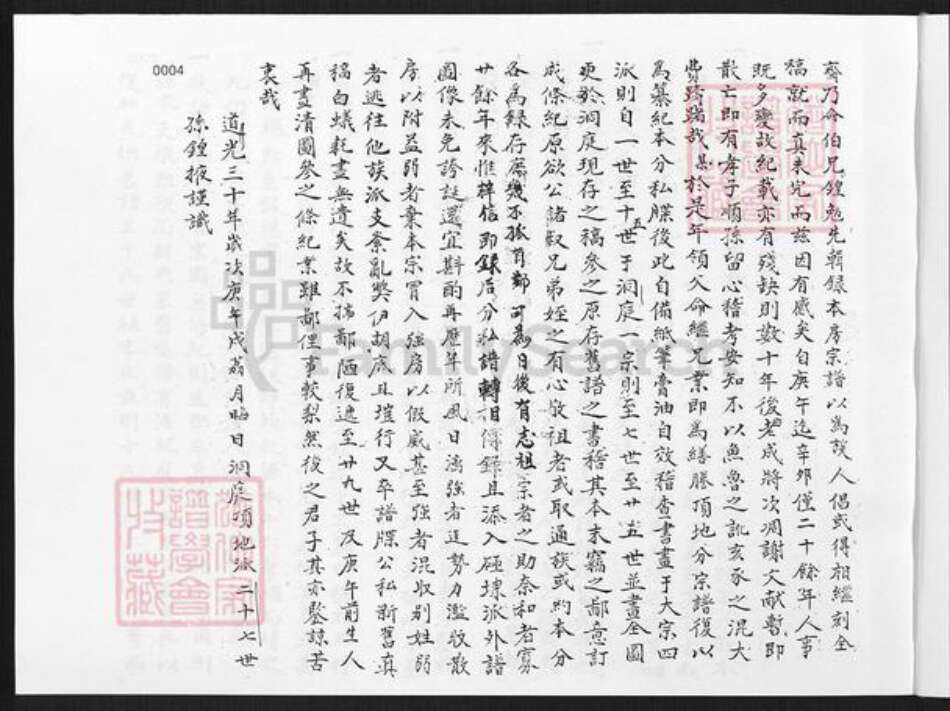 0004
齊乃令伯兄鍾勉先輯錄本房宗譜以為族人倡或得相繼刻全
稿就而真未完而茲因有感矣自庚午迄辛卯僅二十餘年人事
既多變故紀載亦有殘缺則數十年後老成將次凋謝文献暫即
散亡即有孝子順孫留心稽考安知不以魚魯之訛亥豕之混大
費躊躇哉某於是年領父命繼兄業即為繕謄頂地分宗譜復以
為纂紀本分私牒後此自備紙筆膏油自效稽查書畫于大宗四
派則自一世至十五世于洞庭一宗則至七世至廿五世並畫全圖
更於洞庭現存之稿參之原存舊譜之書稽其本末竊之鄙意訂
成條紀原欲公諸叔兄弟姪之有心敬祖者或取通族或約本分
各為錄存庶幾不孤有鄰可為日後有志祖宗者之助奈和者寡
廿餘年來惟 信即録后分私譜轉相傳録且添入碰塽派外譜
圖像未免誇誕還宜斟酌再歷年所風日滴強者逞勢力濫收散
房以附益弱者棄本宗冒入強房以假威甚至強者混收别姓弱
者逃往他族派支紊亂獘伊胡底且墐行又卒譜牒公私新舊真
稿白蟻耗盡無遺矣故不揣鄙陋復遞至廿九世及庚午前生人
再畫清圖參之條紀業雖鄙俚事較梨然後之君子其亦鑒諒苦
衷哉
道光三十年歲次庚午戌茘月晦日洞庭項地派二十七世
孫鍾掖謹識
譜學會
收藏
FamilySearch